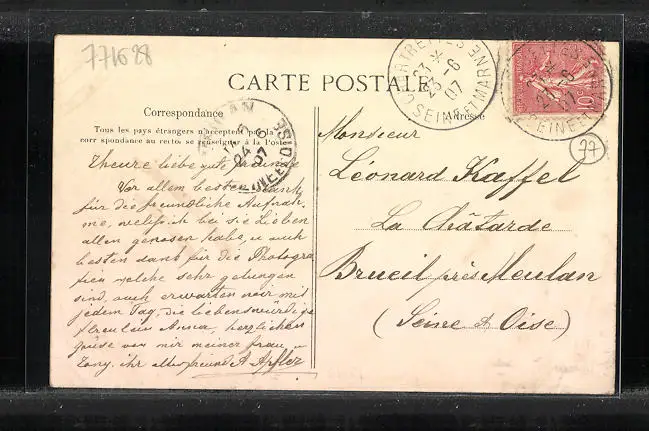 771628
CARTE POSTALE
Correspondance
Adresse
Tous les pays étrangers n'acceptent pas la
correspondance au recto se renseigner à la Poste
CHARTRETTES
23 *
23 -6
07
SEINE ET MARNE
10
24 -6
07
SEINE ET OISE
77
Theure liebe gute Freunde
Vor allem besten Dank
für die freundliche Aufnah
me, welche ich bei sie Lieben
allen genosen habe, u auch
besten dank für die Photogra
fien welche sehr gelungen
sind, auch erwarten wir mit
jedem Tag, die liebenswürdige
Freulein Anna, herzlichen
grüse von mir meiner frau, u
Tony. ihr alter freund A
Monsieur
Léonard Kaffel
La Châtarde
Brueil près Meulan
(Seine & Oise)